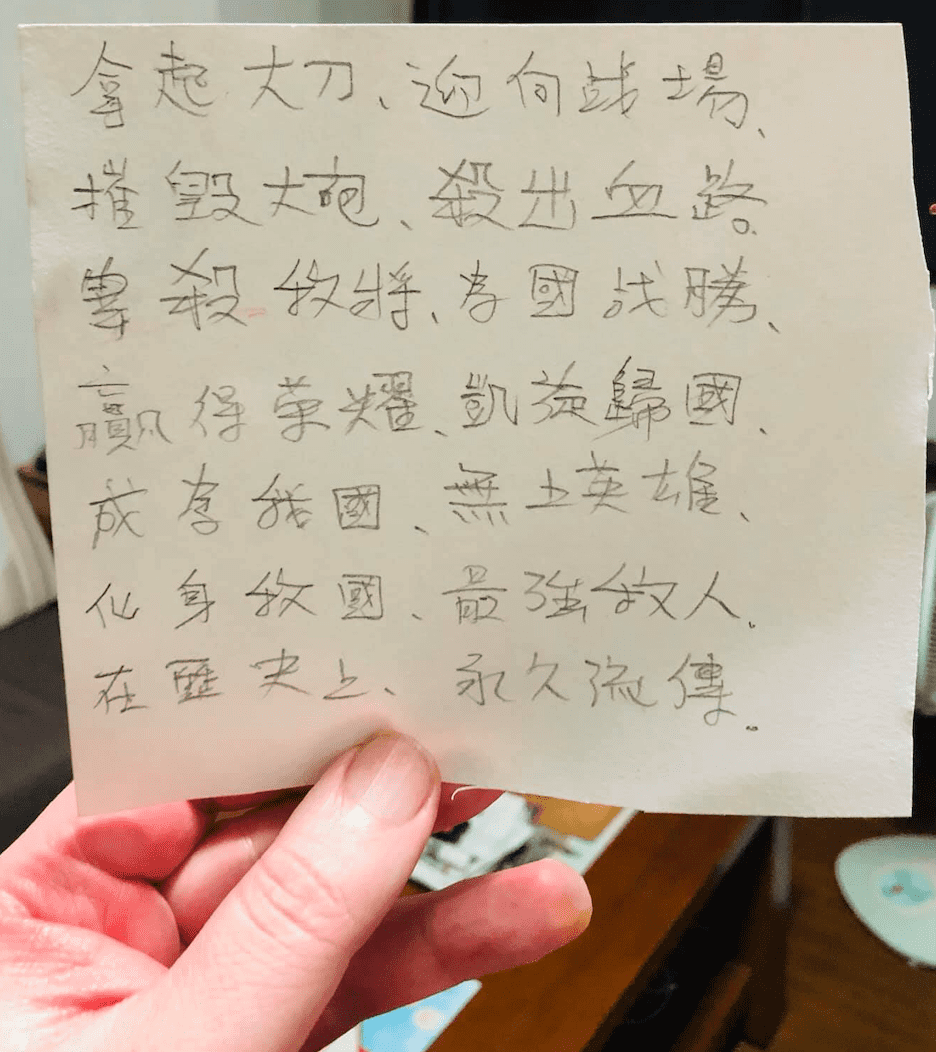 拿起大刀、迎向战場、
摧毀大砲、殺出血路。
專殺敌將、为國战勝、
贏得荣耀、凱旋歸國、
成为我國、無上英雄、
化身敌國、最强敌人。
在歷史上、永久流傳。